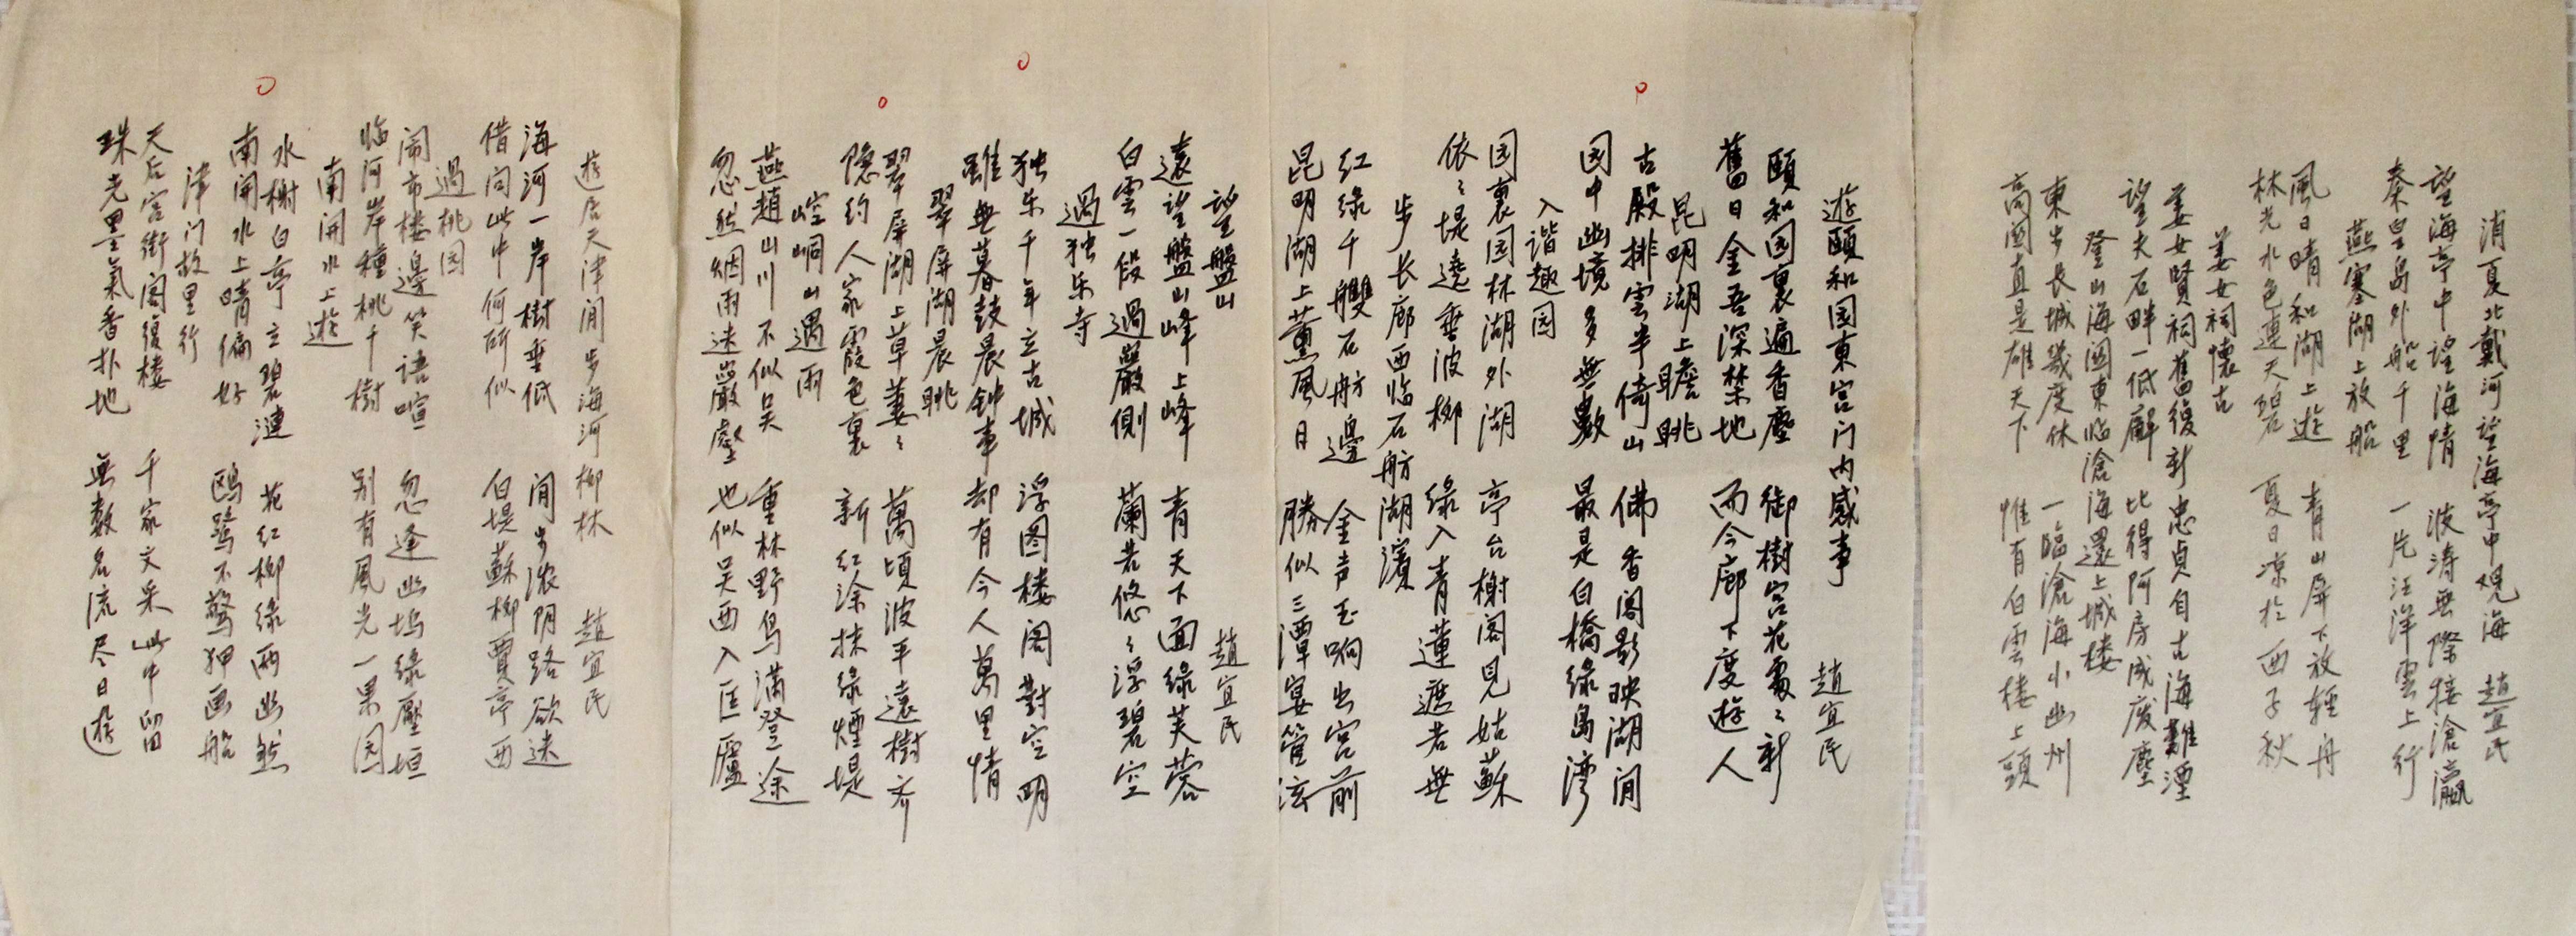 消夏北戴河望海亭中观海 趙宜民
望海亭中望海情 波涛無際接滄瀛
秦皇島外船千里 一片汪洋雲上行
燕塞湖上放船
風日晴和湖上遊 青山屏下放輕舟
林光水色連天碧 夏日凉於西子秋
姜女祠懷古
姜女賢祠舊復新 忠貞自古海難湮
望夫石畔一低徊 比得阿房成废塵
登山海関東临滄海還上城楼
東步長城幾度休 一臨滄海小幽州
高関直是雄天下 惟有白雲楼上頭
遊頤和园東宫门内感事 趙宜民
頤和园裏遍香塵 御樹宫花處々新
舊日金吾深禁地 而今廊下度遊人
昆明湖上瞻眺
古殿排雲半倚山 佛香閣影映湖间
园中幽境多無數 最是白橋绿島湾
入谐趣园
园裏园林湖外湖 亭台榭阁見姑蘇
依々堤遶垂波柳 绿入青蓮遮若無
步长廊西临石舫湖濱
红绿千艭石舫邊 金声玉响出宫前
昆明湖上薰風日 勝似三潭宴管弦
望盤山 趙宜民
遠望盤山峰上峰 青天下面绿芙蓉
白雲一段過嚴側 蘭若悠々浮碧空
過独乐寺
独乐千年立古城 浮图楼阁對空明
雖無暮鼓晨钟事 却有今人萬里情
翠屏湖晨眺
翠屏湖上草萋々 萬頃波平遠樹齐
隐约人家霞色裏 新红涂抹绿煙堤
崆峒山遇雨
燕趙山川不似吴 重林野鸟满登途
忽然烟雨迷巖壑 也似吴西入匡廬
遊居天津闲步海河柳林 趙宜民
海河一岸樹垂低 闲步浓阴路欲迷
借问此中何所似 白堤蘇柳賈亭西
過桃园
闹市楼邊笑语喧 忽逢幽塢绿壓垣
临河岸種桃千樹 别有風光一果园
南開水上遊
水榭白亭立碧漣 花红柳绿两幽然
南開水上晴偏好 鸥鹭不驚狎画船
津门故里行
天后宫街阁復楼 千家文采此中留
珠光墨氣香扑地 無数名流尽日遊